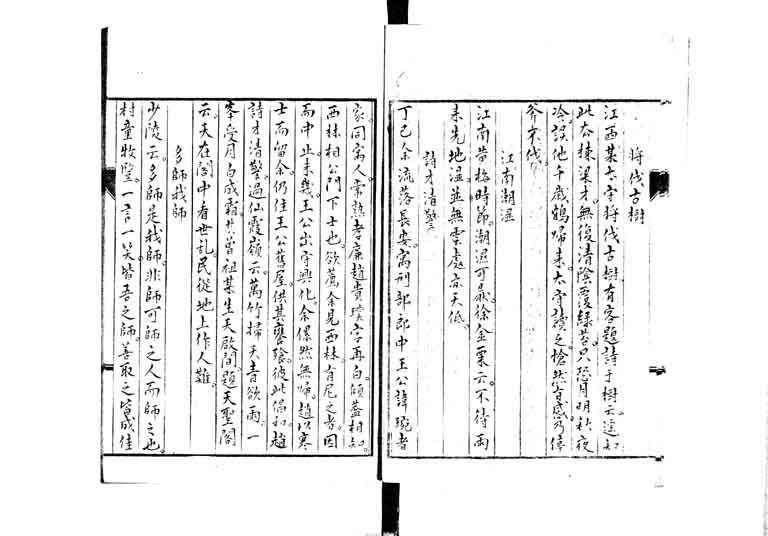 將伐古樹
江西某太守將伐古樹有客題詩于樹云遙知
此去棟梁才無復清陰覆綠苔只恐月明秋夜
冷誤他千歲鶴歸來太守讀之愴然有感乃停
斧不伐
江南潮濕
江南黃梅時節潮濕可厭徐金粟云不待雨
來先地濕並無雲處亦天低
詩才清警
丁巳余流落長安寓刑部郎中王公諱琬者
家同寓人常熟孝廉趙貴璞字再白傾蓋相知
西林相公門下士也欲薦余見西林有尼之者因
而中止未幾王公出守興化余傫然無歸趙以寒
士而留余仍住王公舊屋供其饔飧彼此倡和趙
詩才清警過仙霞嶺云萬竹掃天青欲雨一
峯受月白成霜其曾祖某生天啟間題天聖閣
云天在閣中看世亂民從地上作人難
多師我師
少陵云多師是我師非師可師之人而師之也
村童牧豎一言一笑皆吾之師善取之皆成佳